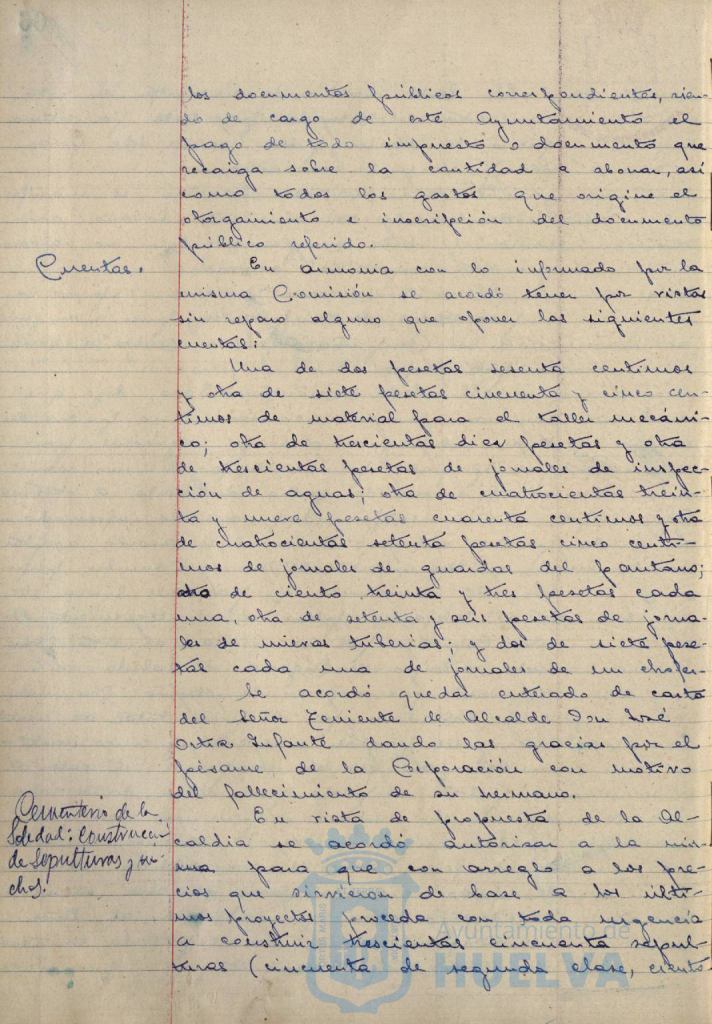 los documentos públicos correspondientes, sien-
do de cargo de este Ayuntamiento el
pago de todo impuesto o documento que
recaiga sobre la cantidad a abonar, así
como todos los gastos que origine el
otorgamiento e inscripción del documento
público referido.
Cuentas.
En armonia con lo informado por la
misma Comisión se acordó tener por vistas
sin reparo alguno que oponer las siguientes
cuentas:
Una de dos pesetas sesenta centimos
y otra de siete pesetas cincuenta y cinco cen-
timos de material para el taller mecáni-
co; otra de trescientas diez pesetas y otra
de trescientas pesetas de jornales de inspec-
ción de aguas; otra de cuatrocientas trein-
ta y nueve pesetas cuarenta centimos y otra
de cuatrocientas setenta pesetas cinco centi-
mos de jornales de guardas del pantano;
dos de ciento treinta y tres pesetas cada
una, otra de setenta y seis pesetas de jorna-
les de nuevas tuberias; y dos de siete pese-
tas cada una de jornales de un chofer.
Se acordó quedar enterado de carta
del Señor Teniente de Alcalde Don José
Ortiz Infante dando las gracias por el
pésame de la Corporación con motivo
del fallecimiento de su hermano.
Cementerio de la
Soledad: Construcción
de Sepulturas y ni-
chos.
En vista de propuesta de la Al-
caldia se acordó autorizar a la mis-
ma para que con arreglo a los pre-
cios que sirvieron de base a los últi-
mos proyectos proceda con toda urgencia
a construir trescientas cincuenta sepul-
turas (cincuenta de segunda clase, ciento
Ayuntamiento de
HUELVA